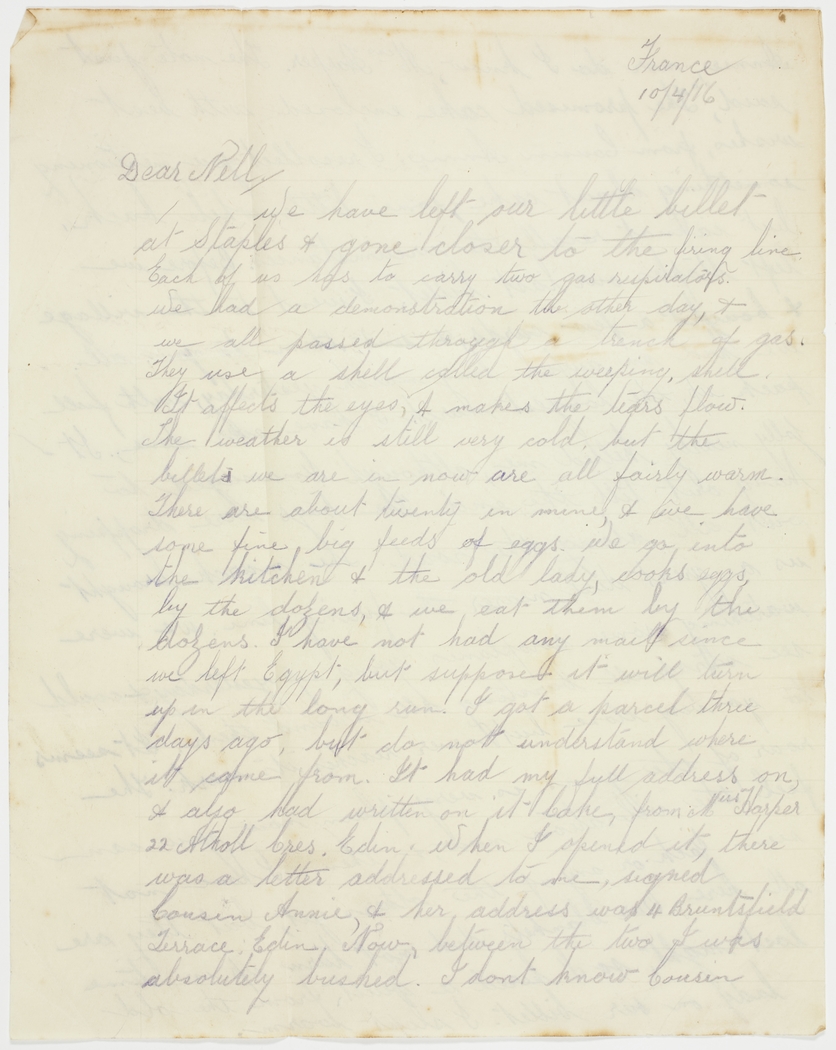 France
10/4/16
Dear Nell,
We have left our little billet
at Staples & gone closer to the firing line.
Each of us has to carry two gas respirators.
We had a demonstration the other day, &
we all passed through a trench of gas.
They use a shell called the weeping, shell.
It affects the eyes, & makes the tears flow.
The weather is still very cold, but the
billets we are in now are all fairly warm.
There are about twenty in mine, & we have
some fine big feeds of eggs. We go into
the kitchen & the old lady, cooks eggs,
by the dozens, & we eat them by the
dozens. I have not had any mail since
we left Egypt, but suppose it will turn
up in the long run. I got a parcel three
days ago, but do not understand where
it came from. It had my full address on,
& also had written on it Cake, from Miss Harper
22 Atholl Cres. Edin. When I opened it, there
was a letter addressed to me, signed
Cousin Annie, & her address was 4 Bruntsfield
Terrace. Edin. Now, between the two I was
absolutely bushed. I dont know Cousin